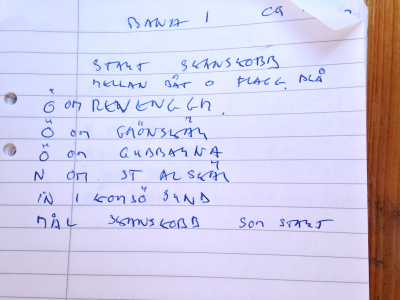 BANA 1
START SKANSKOBB
MELLAN BÅT O FLAGG. BLÅ
Ö om RENENGGR.
Ö om GRÖNSKÄR
Ö om GUBBARNA
N om ST ALSKÄR
IN I KOMSÖ SUND
MÅL SKANSKOBB SOM START